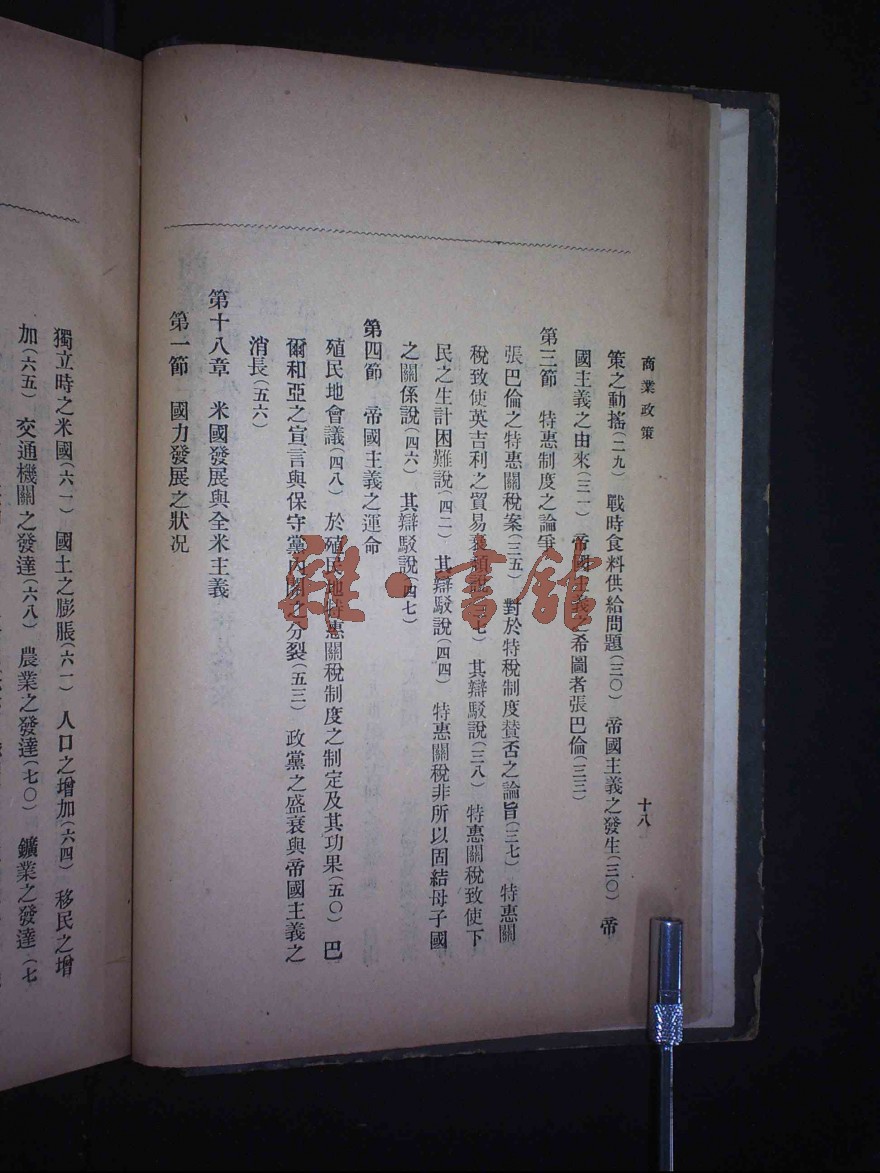 商業政策
十八
策之動搖(二九) 戰時食料供給問題(三〇) 帝國主義之發生(三〇) 帝
國主義之由來(三一) 帝國主義之希圖者張巴倫(三三)
第三節 特惠制度之論爭
張巴倫之特惠關稅案(三五) 對於特稅制度賛否之論旨(三七) 特惠關
稅致使英吉利之貿易衰頽說(三七) 其辯駁說(三八) 特惠關稅致使下
民之生計困難說(四二) 其辯駁說(四四) 特惠關稅非所以固結母子國
之關係說(四六) 其辯駁說(四七)
第四節 帝國主義之運命
殖民地會議(四八) 於殖民地特惠關稅制度之制定及其功果(五〇) 巴
爾和亞之宣言與保守黨內閣之分裂(五三) 政黨之盛衰與帝國主義之
消長(五六)
第十八章 米國發展與全米主義
第一節 國力發展之狀況
獨立時之米國(六一) 國土之膨脹(六一) 人口之增加(六四) 移民之增
加(六五) 交通機關之發達(六八) 農業之發達(七〇) 鑛業之發達(七
雜·書館